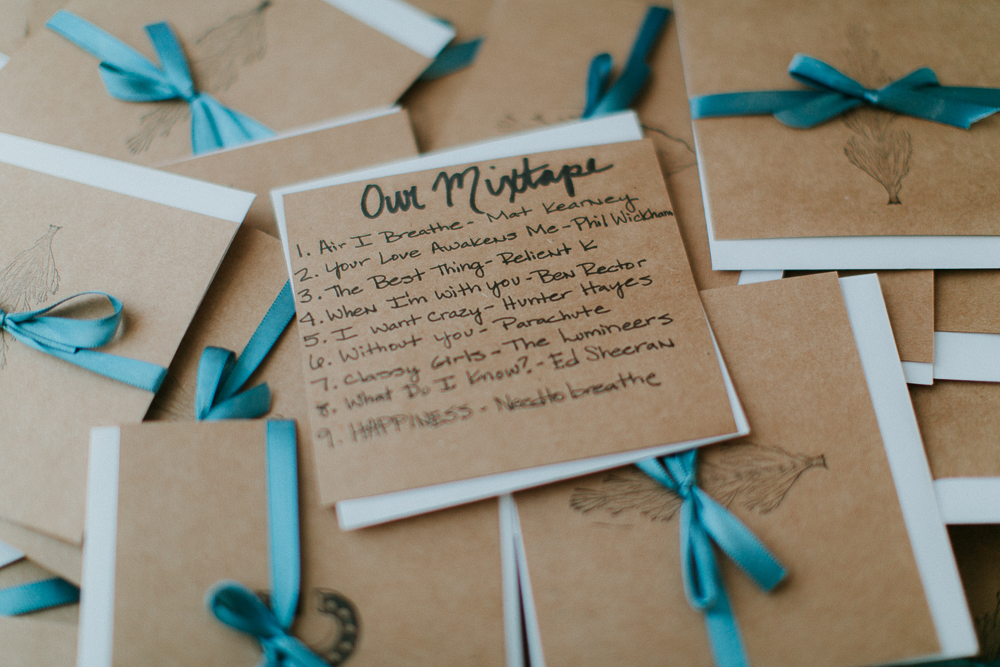 Our Mixtape
1. Air I Breathe - Mat Kearney
2. Your Love Awakens Me - Phil Wickham
3. The Best Thing - Relient K
4. When I'm with you - Ben Rector
5. I want crazy - Hunter Hayes
6. Without you - Parachute
7. Classy Girls - The Lumineers
8. What Do I Know? - Ed Sheeran
9. HAPPINESS - Needtobreathe